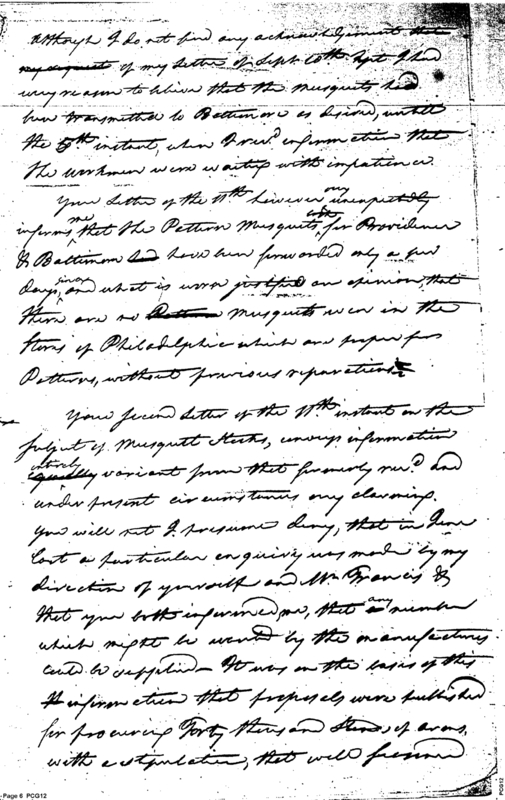 Although I do not find any acknowledgement that
my requests of my Letter of Sept. 10th Sept. I had
very reason to believe that the musquets had
been transmitted to Baltimore as desired, untill
the 5th instant, when I recd. information that
the workmen were waiting with impatience.
Your Letter of the 11th however very unexpectedly
informs me that the Pattern Musquets for Providence
& Baltimore have been forwarded only a few
days since, and what is worse justified an opinion, that
there are no Pattern Musquets even in the
Stores of Philadelphia which are proper for
Patterns, without previous reparations
Your second Letter of the 11th instant on the
subject of Musquet Stocks, conveys information
equally entirely variant from that formerly recd. and
under present circumstances very alarming.
You will not I presume deny, that in June
last a particular enquiry was made by my
direction of yourself and Mr. Francis &
that you both informed me, that any number
which might be wanted by the manufactures
could be supplied – It was on the basis of this
information that proposals were published
for procuring Forty thousand Stand, of arms,
with a stipulation, that well seasoned
Page 6 PCG12
PCG12